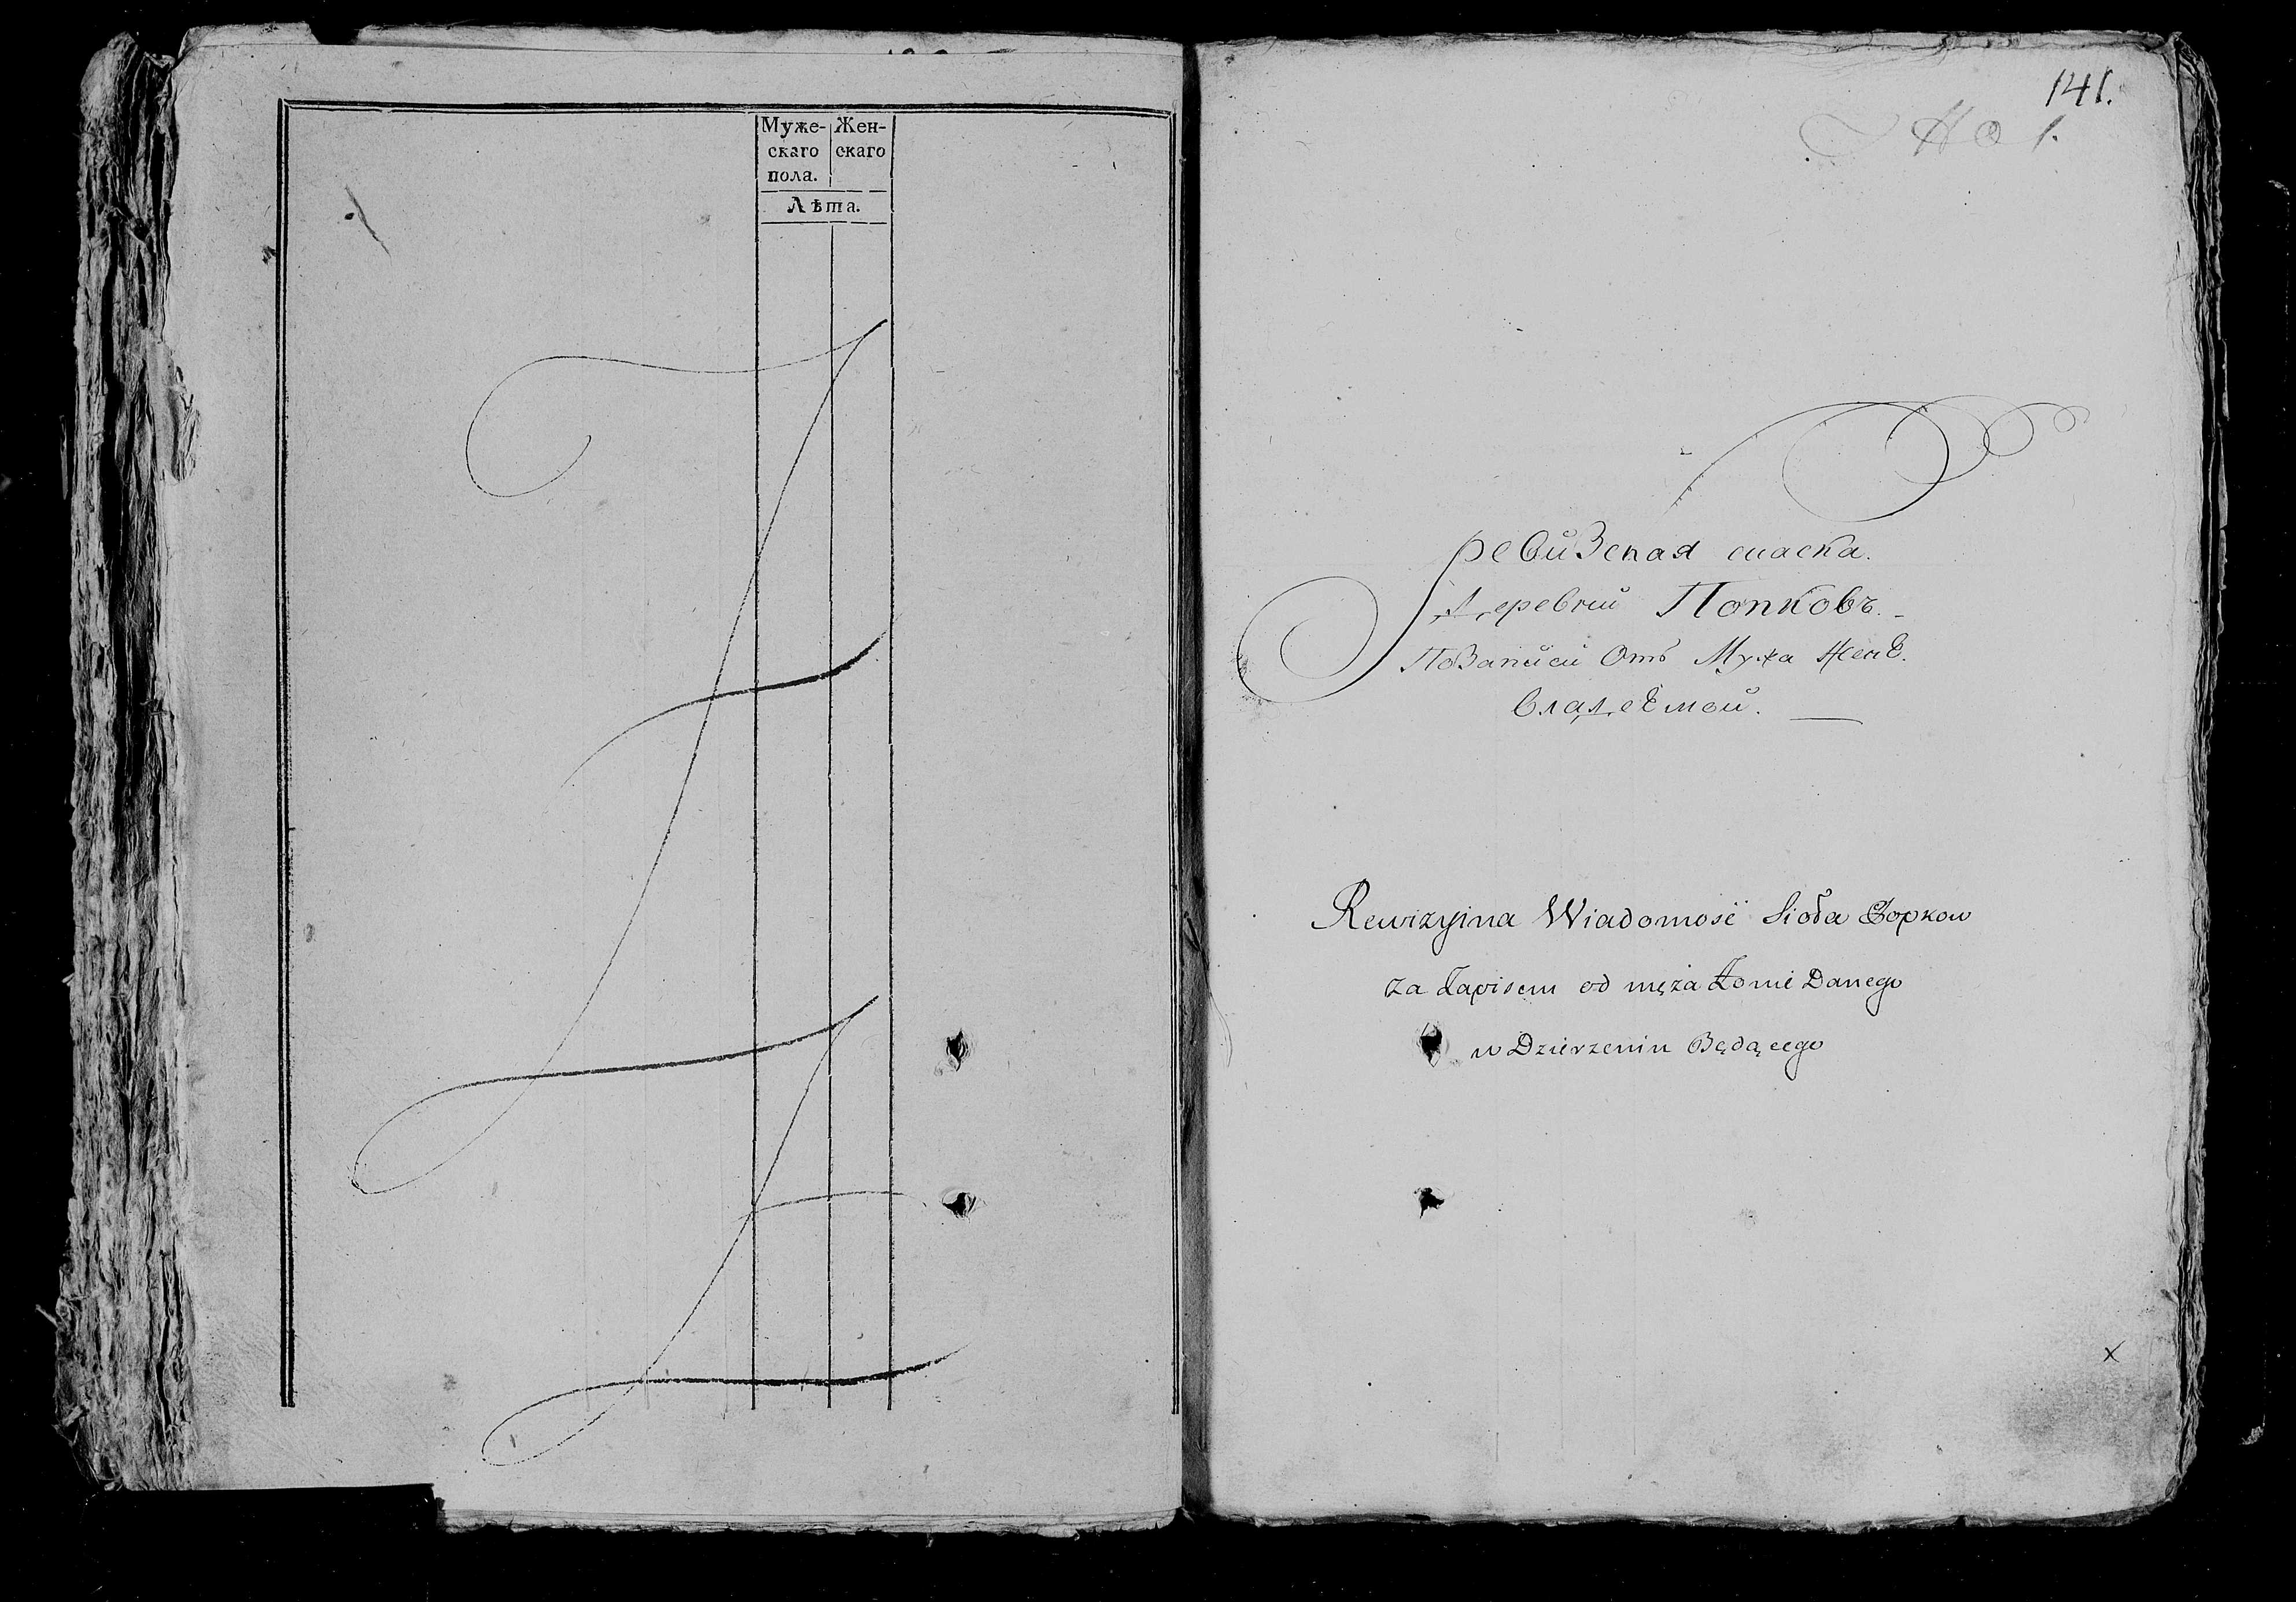 Муже-
скаго
пола.
Жен-
скаго
Лѣта.
141.
No 1.
Ревизская скаска.
Деревни Попковъ.
Позаписи Отъ Мужа Женѣ.
Владеемой.
Rewizyina Wiadomość Sioła Popkow
za Zapisem od męża Żonie Danego
w Dzierzeniu Będącego
x